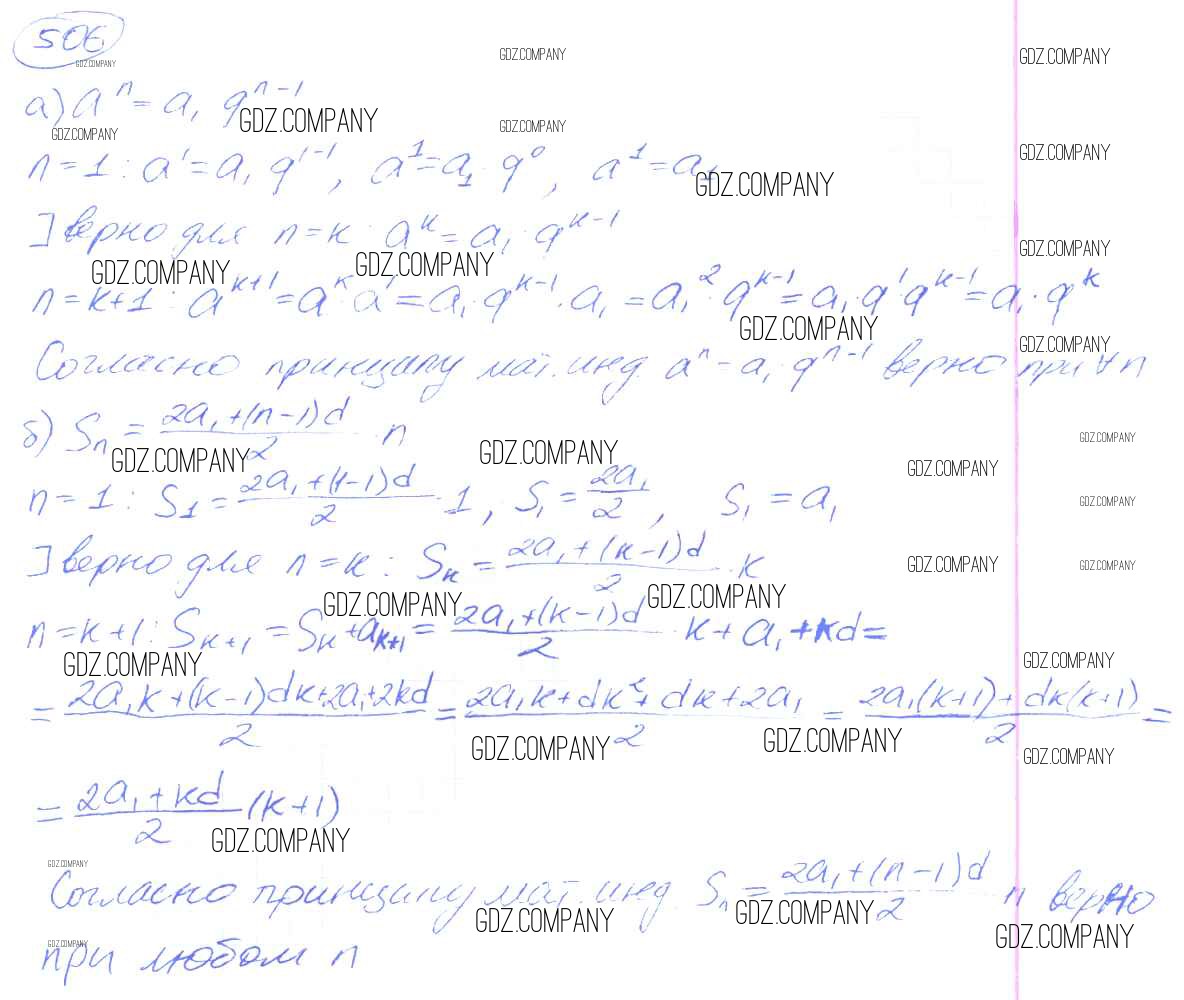 506
GDZ.COMPANY GDZ.COMPANY GDZ.COMPANY
а) aⁿ = a₁ qⁿ⁻¹
GDZ.COMPANY GDZ.COMPANY GDZ.COMPANY
n = 1 : a¹ = a₁ q¹⁻¹, a¹ = a₁ · q⁰, a¹ = a₁
GDZ.COMPANY GDZ.COMPANY
] верно для n = k : aᵏ = a₁ · qᵏ⁻¹
GDZ.COMPANY GDZ.COMPANY GDZ.COMPANY
n = k+1 : aᵏ⁺¹ = aᵏ · a¹ = a₁ · qᵏ⁻¹ · a₁ = a₁² · qᵏ⁻¹ = a₁ · q¹ qᵏ⁻¹ = a₁ · qᵏ
GDZ.COMPANY GDZ.COMPANY
Согласно принципу мат. инд. aⁿ = a₁ · qⁿ⁻¹ верно при ∀ n
б) Sₙ = (2a₁ + (n-1)d)/2 · n
GDZ.COMPANY GDZ.COMPANY GDZ.COMPANY GDZ.COMPANY
n = 1 : S₁ = (2a₁ + (1-1)d)/2 · 1, S₁ = 2a₁/2, S₁ = a₁
GDZ.COMPANY
] верно для n = k : Sₖ = (2a₁ + (k-1)d)/2 · k
GDZ.COMPANY GDZ.COMPANY GDZ.COMPANY GDZ.COMPANY
n = k+1 : Sₖ₊₁ = Sₖ + aₖ₊₁ = (2a₁ + (k-1)d)/2 · k + a₁ + kd =
GDZ.COMPANY GDZ.COMPANY
= (2a₁k + (k-1)dk + 2a₁ + 2kd)/2 = (2a₁k + dk² + dk + 2a₁)/2 = (2a₁(k+1) + dk(k+1))/2 =
GDZ.COMPANY GDZ.COMPANY GDZ.COMPANY
= (2a₁ + kd)/2 (k+1)
GDZ.COMPANY
GDZ.COMPANY
Согласно принципу мат. инд. Sₙ = (2a₁ + (n-1)d)/2 n верно
GDZ.COMPANY GDZ.COMPANY GDZ.COMPANY
GDZ.COMPANY
при любом n